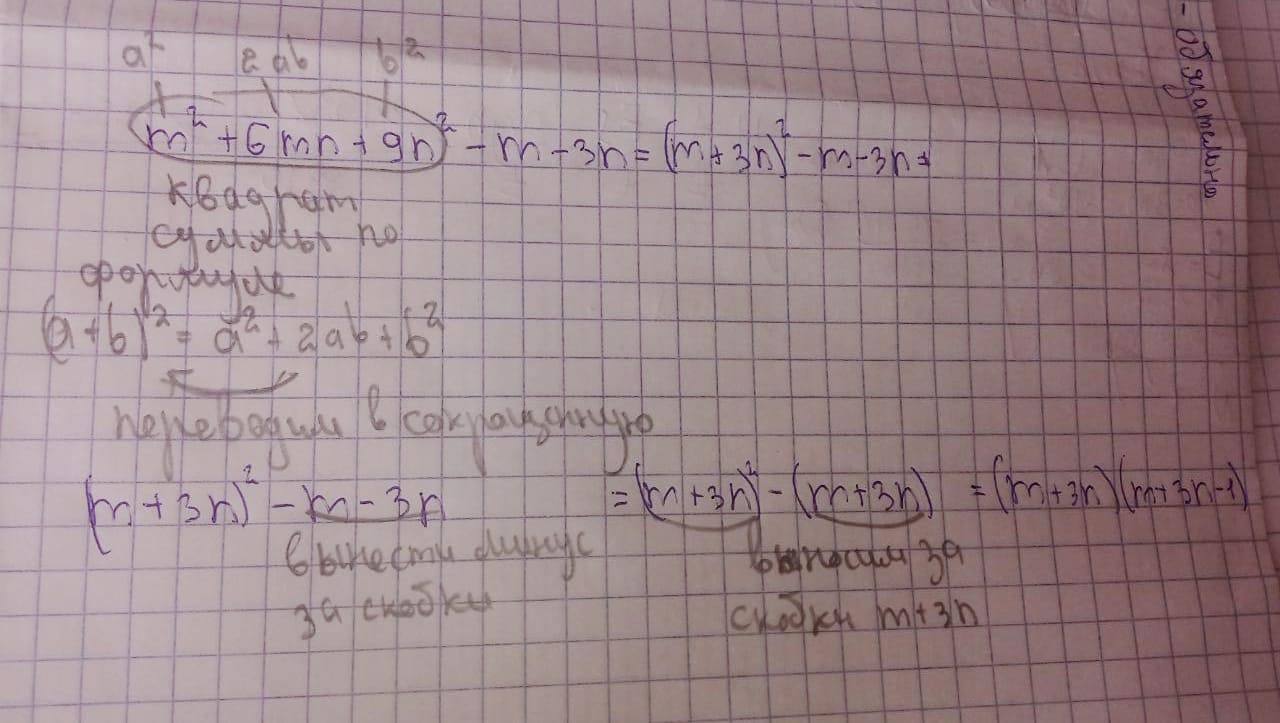 a² 2ab b²
m² + 6mn + 9n² - m - 3n = (m+3n)² - m - 3n =
квадрат
суммы по
формуле
(a+b)² = a² + 2ab + b²
переводим в сокращенную
(m+3n)² - m - 3n = (m+3n)² - (m+3n) = (m+3n)(m+3n-1)
вынести минус выносим за
за скобки скобки m+3n
- обязательно